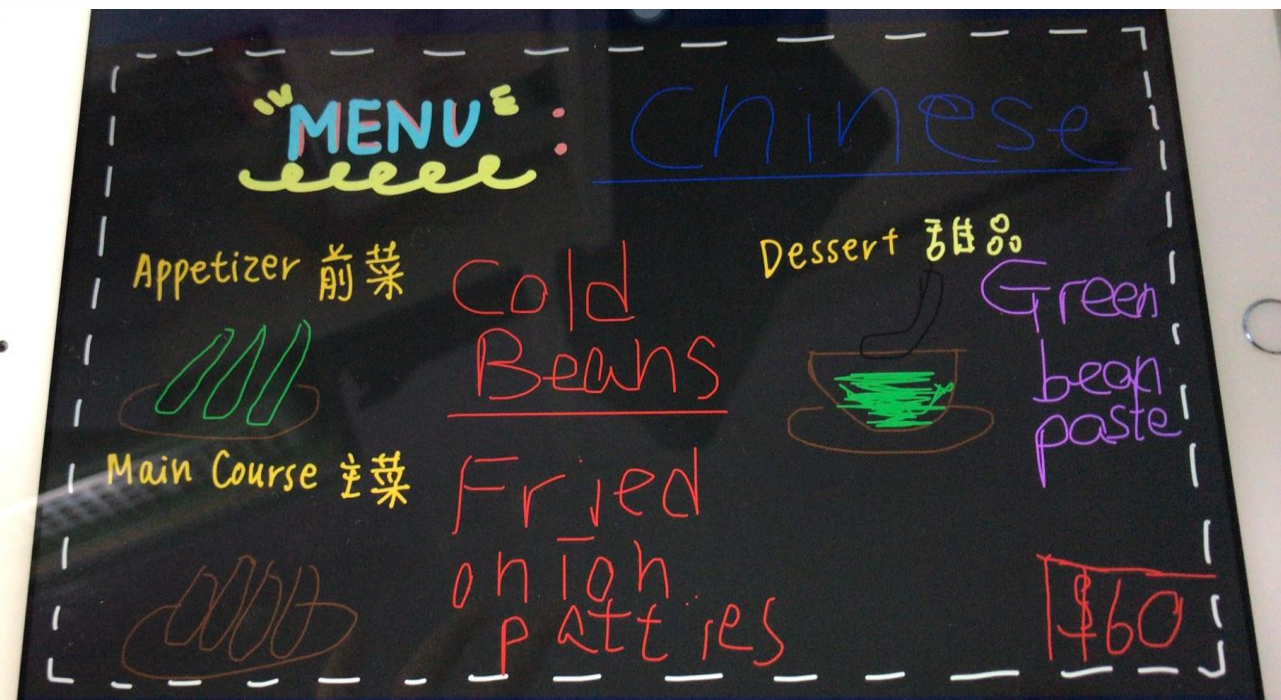 MENU : Chinese
Appetizer 前菜
Cold
Beans
Main Course 主菜
Fried
onion
patties
Dessert 甜品
Green
bean
paste
$60